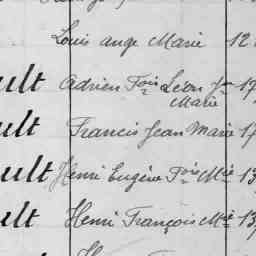 Louis ange Marie 12
ult Adrien Fois Léon Jn 17
Marie
ult Francis Jean Marie 14
ult Henri Eugène Fois Mie 13
ult Henri François Mie 13